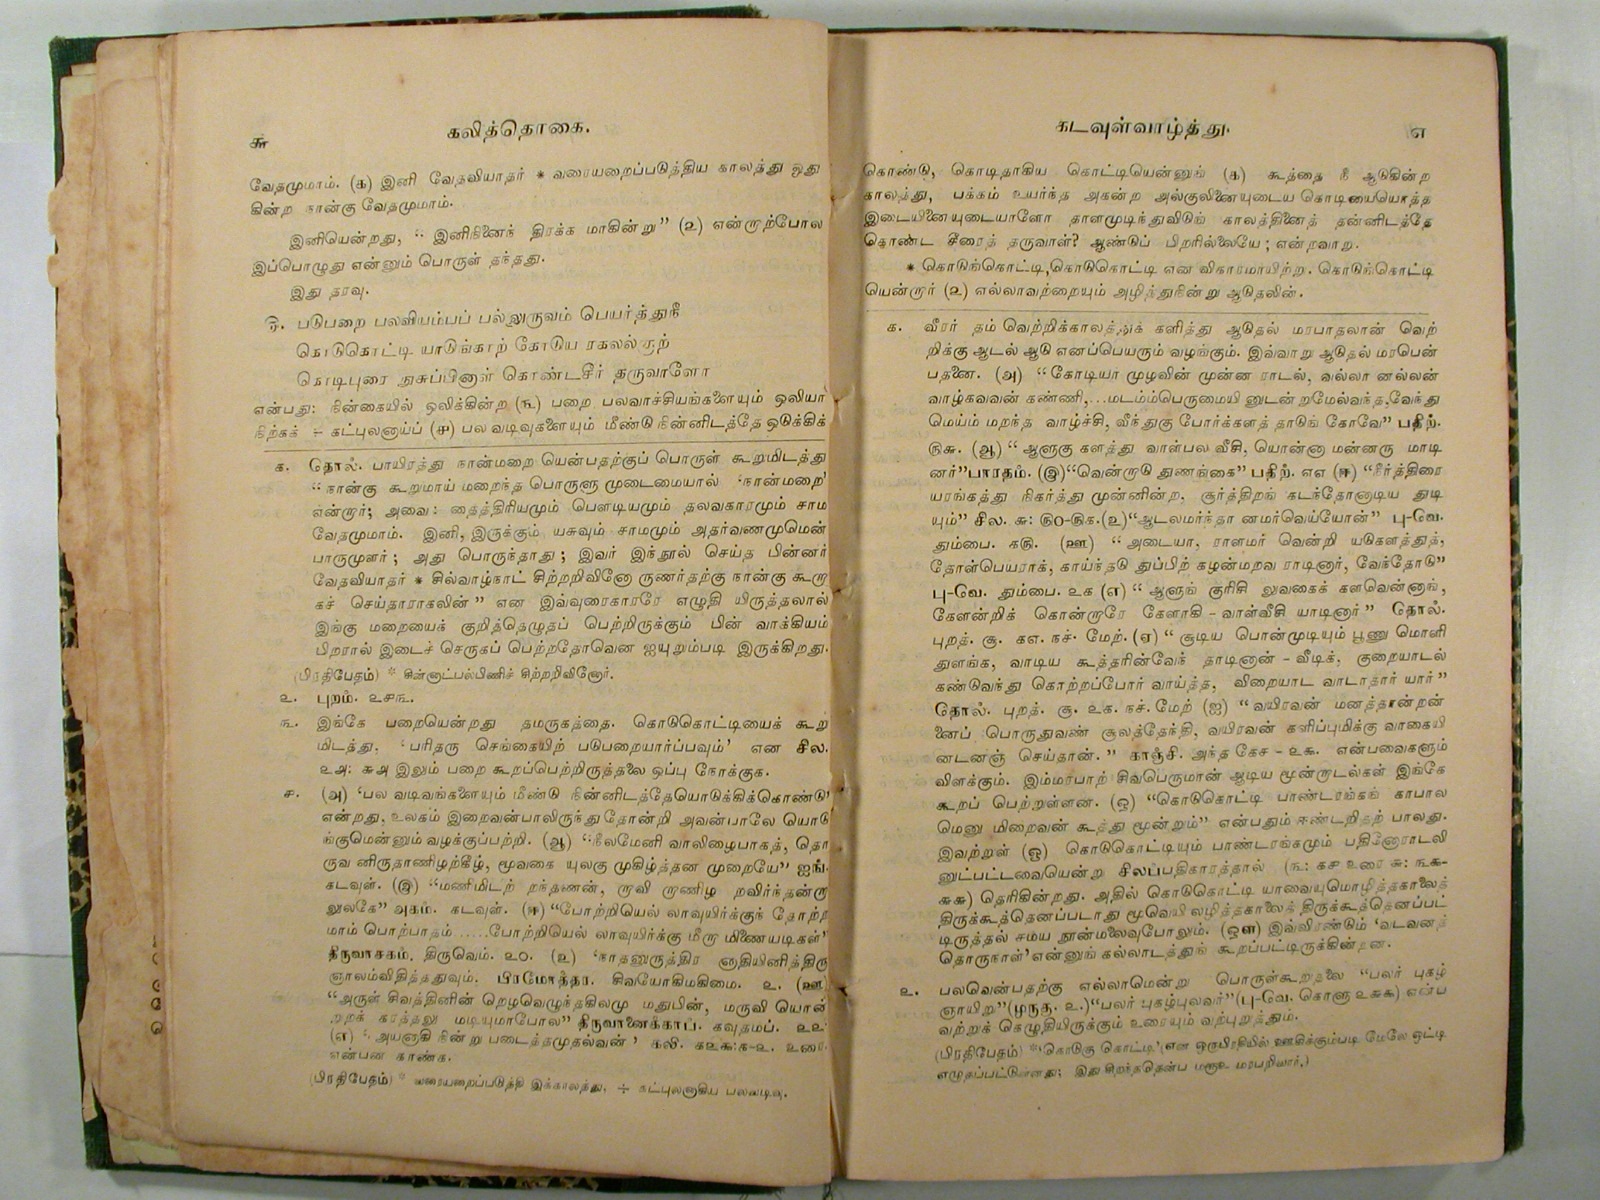 ௬
கலித்தொகை.
வேதமுமாம். (க) இனி வேதவியாதர் * வரையறைப்படுத்திய காலத்து ஓது
கின்ற நான்கு வேதமுமாம்.
இனியென்றது, “ இனிநினைந் திரக்க மாகின்று” (௨) என்றாற்போல
இப்பொழுது என்னும் பொருள் தந்தது.
இது தரவு.
படுபறை பலவியம்பப் பல்லுருவம் பெயர்த்துநீ
கொடுகொட்டி யாடுங்காற் கோடுய ரகலல்குற்
கொடிபுரை நுசுப்பினாள் கொண்டசீர் தருவாளோ
என்பது: நின்கையில் ஒலிக்கின்ற (௩) பறை பலவாச்சியங்களையும் ஒலியா
நிற்கக் ÷ கட்புலனாய்ப் (௪) பல வடிவுகளையும் மீண்டு நின்னிடத்தே ஒடுக்கிக்
க. தொல். பாயிரத்து நான்மறை யென்பதற்குப் பொருள் கூறுமிடத்து
“நான்கு கூறுமாய் மறைந்த பொருளு முடைமையால் ‘நான்மறை’
என்றார்; அவை: தைத்திரியமும் பௌடியமும் தலவகாரமும் சாம
வேதமுமாம். இனி, இருக்கும் யசுவும் சாமமும் அதர்வணமுமென்
பாருமுளர்; அது பொருந்தாது; இவர் இந்நூல் செய்த பின்னர்
வேதவியாதர் * சில்வாழ்நாட் சிற்றறிவினோ ருணர்தற்கு நான்கு கூறா
கச் செய்தாராகலின்” என இவ்வுரைகாரரே எழுதி யிருத்தலால்
இங்கு மறையைக் குறித்தெழுதப் பெற்றிருக்கும் பின் வாக்கியம்
பிறரால் இடைச் செருகப் பெற்றதோவென ஐயுறும்படி இருக்கிறது.
(பிரதிபேதம்) * சின்னாட்பல்பிணிச் சிற்றறிவினோர்.
௨. புறம். ௨௪௩.
௩. இங்கே பறையென்றது தமருகத்தை. கொடுகொட்டியைக் கூறு
மிடத்து, ‘பரிதரு செங்கையிற் படுபறையார்ப்பவும்’ என சில.
௨௮: ௬௮ இலும் பறை கூறப்பெற்றிருத்தலை ஒப்பு நோக்குக.
௪. (அ) ‘பல வடிவங்களையும் மீண்டு நின்னிடத்தேயொடுக்கிக்கொண்டு’
என்றது, உலகம் இறைவன்பாலிருந்து தோன்றி அவன்பாலே யொடு
ங்குமென்னும் வழக்குப்பற்றி. (ஆ) “நீலமேனி வாலிழைபாகத், தொ
ருவ னிருதாணிழற்கீழ், மூவகை யுலகு முகிழ்த்தன முறையே” ஐங்.
கடவுள். (இ) “மணிமிடற் றந்தணன், தாவி றாணிழ றவிர்ந்தன்றா
லுலகே” அகம். கடவுள். (ஈ) “போற்றியெல் லாவுயிர்க்குந் தோற்ற
மாம் பொற்பாதம் .....போற்றியெல் லாவுயிர்க்கு மீறா மிணையடிகள்”
திருவாசகம். திருவெம். ௨௦. (உ) ‘நாதனுருத்திர னாதியினித்திரு
ஞாலம்விதித்ததுவும். பிரமோத்தர. சிவயோகிமகிமை. ௨. (ஊ)
“அருள் சிவத்தினின் றெழவெழுந்தகிலமு மதுபின், மருவி யொன்
றறக் கரத்தலு மடியுமாபோல” திருவானைக்காப். கவுதமப். ௨௨:
(எ) “அயனாகி நின்று படைத்தமுதல்வன்’ கலி. க௨௯:க-௨. உரை
என்பன காண்க.
(பிரதிபேதம்) * வரையறைப்படுத்தி இக்காலத்து, ÷ கட்புலனாகிய பலவடிவு.
கடவுள்வாழ்த்து.
எ
கொண்டு, கொடிதாகிய கொட்டியென்னுங் (க) கூத்தை நீ ஆடுகின்ற
காலத்து, பக்கம் உயர்ந்த அகன்ற அல்குலினையுடைய கொடியையொத்த
இடையினையுடையாளோ தாளமுடிந்துவிடுங் காலத்தினைத் தன்னிடத்தே
கொண்ட சீரைத் தருவாள்? ஆண்டுப் பிறரில்லையே; என்றவாறு.
* கொடுங்கொட்டி, கொடுகொட்டி என விகாரமாயிற்று. கொடுங்கொட்டி
யென்றார் (௨) எல்லாவற்றையும் அழித்துநின்று ஆடுதலின்.
க. வீரர் தம் வெற்றிக்காலத்துக் களித்து ஆடுதல் மரபாதலான் வெற்
றிக்கு ஆடல் ஆடு எனப்பெயரும் வழங்கும். இவ்வாறு ஆடுதல் மரபென்
பதனை. (அ) “கோடியர் முழவின் முன்ன ராடல், வல்லா னல்லன்
வாழ்கவவன் கண்ணி,...மடம்பெருமையி னுடன்றுமேல்வந்த, வேந்து
மெய்ம் மறந்த வாழ்ச்சி, வீந்துகு போர்க்களத் தாடுங் கோவே” பதிற்.
௫௬. (ஆ) “ ஆளுகு களத்து வாள்பல வீசி, யொன்னா மன்னரு மாடி
னர்” பாரதம். (இ) “வென்றாடு துணங்கை” பதிற். எஎ (ஈ) “நீர்த்திரை
யரங்கத்து நிகர்த்து முன்னின்ற, சூர்த்திறங் கடந்தோனாடிய துடி
யும்” சில. ௬: ௫௦-௫க. (உ) “ஆடலமர்ந்தா னமர்வெய்யோன்” பு-வெ.
தும்பை. ௧௫. (ஊ) “ அடையா, ராளமர் வென்றி யடுகளத்துத்,
தோள்பெயராக், காய்ந்தடு துப்பிற் கழன்மறவ ராடினார், வேந்தோடு”
பு-வெ. தும்பை. ௨௧ (எ) “ ஆளுங் குரிசி லுவகைக் களவென்னாங்,
கேளன்றிக் கொன்றாரே கேளாகி - வாள்வீசி யாடினார்” தொல்.
புறத். சூ. கஎ. நச். மேற். (ஏ) “ சூடிய பொன்முடியும் பூணு மொளி
துளங்க, வாடிய கூத்தரின்வேந் தாடினான் - வீடிக், குறையாடல்
கண்டுவந்து கொற்றப்போர் வாய்த்த, விறையாட வாடாதார் யார்”
தொல். புறத். சூ. ௨௧. நச். மேற் (ஐ) “ வயிரவன் மனத்தான்றன்
னைப் பொருதுவண் சூலத்தேந்தி, வயிரவன் களிப்புமிக்கு வாகையி
னடனஞ் செய்தான்.” காஞ்சி. அந்தகேச - ௨௬. என்பவைகளும்
விளக்கும். இம்மரபாற் சிவபெருமான் ஆடிய மூன்றாடல்கள் இங்கே
கூறப் பெற்றுள்ளன. (ஒ) “கொடுகொட்டி பாண்டரங்கங் காபால
மெனு மிறைவன் கூத்து மூன்றும்” என்பதும் ஈண்டறிதற் பாலது.
இவற்றுள் (ஓ) கொடுகொட்டியும் பாண்டரங்கமும் பதினோராடலி
னுட்பட்டவையென்று சிலப்பதிகாரத்தால் (௩: க௪ உரை ௬: ௩௯-
௬௬) தெரிகின்றது. அதில் கொடுகொட்டி யாவையுமொழித்தகாலைத்
திருக்கூத்தெனப்படாது மூவெயி லழித்தகாலைத் திருக்கூத்தெனப்பட்
டிருத்தல் சமய நூன்மலைவுபோலும். (ஔ) இவ்விரண்டும் ‘வடவனத்
தொருநாள்’ என்னுங் கல்லாடத்துங் கூறப்பட்டிருக்கின்றன.
௨. பலவென்பதற்கு எல்லாமென்று பொருள்கூறுதலை “பலர் புகழ்
ஞாயிறு” (முருகு. ௨.) “பலர் புகழ்புலவர்” (பு-வெ. கொளு ௨௬௬) என்ப
வற்றுக் கெழுதியிருக்கும் உரையும் வற்புறுத்தும்.
(பிரதிபேதம்) *‘கொடுகு கொட்டி’ (என ஒருபிரதியில் ஊகிக்கும்படி மேலே ஒட்டி
எழுதப்பட்டுள்ளது;